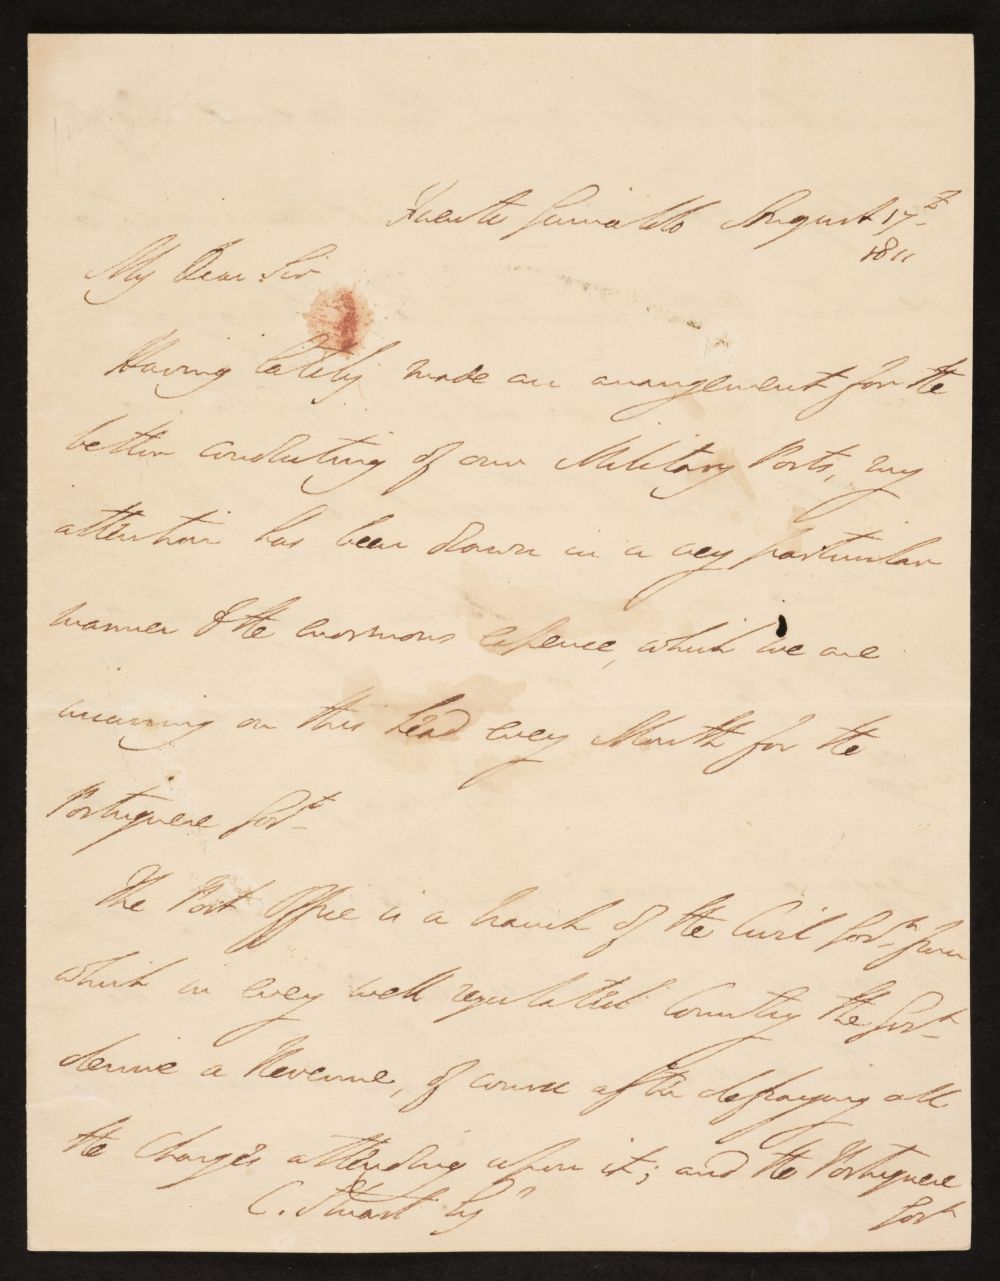 Fuente Guinaldo August 17th
1811
My Dear Sir
Having lately made an arrangement for the
better conducting of our Military Posts, my
attention has been drawn in a very particular
manner to the enormous expence, which we are
incurring on this head every Month for the
Portuguese Govt
The Post Office is a branch of the Civil Govt from
which in every well regulated Country the Govt
derive a Revenue, of course after defraying all
the Charges attending upon it; and the Portuguese
C. Stuart Esq
Govt